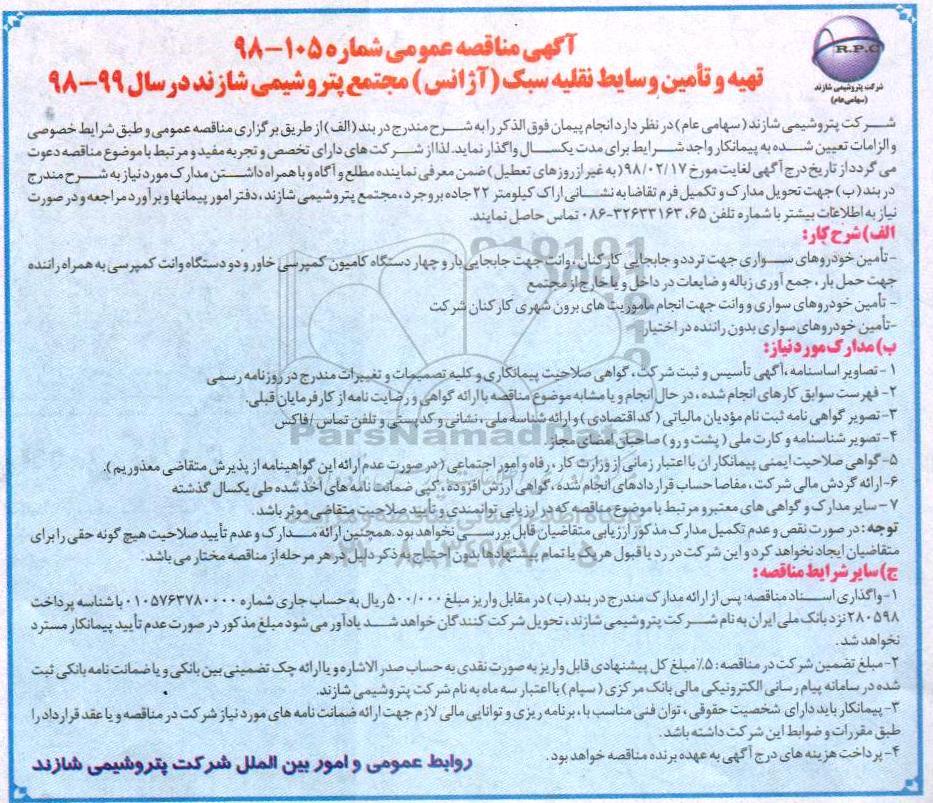 آگهی مناقصه عمومی شماره ۱۰۵-۹۸
تهیه و تأمین وسایط نقلیه سبک (آژانس) مجتمع پتروشیمی شازند در سال ۹۹-۹۸
R.P.C
شرکت پتروشیمی شازند
(سهامی عام)
شرکت پتروشیمی شازند (سهامی عام) در نظر دارد انجام پیمان فوق الذکر را به شرح مندرج در بند (الف) از طریق برگزاری مناقصه عمومی و طبق شرایط خصوصی
و الزامات تعیین شده به پیمانکار واجد شرایط برای مدت یکسال واگذار نماید. لذا از شرکت های دارای تخصص و تجربه مفید و مرتبط با موضوع مناقصه دعوت
می گردد از تاریخ درج آگهی لغایت مورخ ۹۸/۰۲/۱۷ (به غیر از روزهای تعطیل) ضمن معرفی نماینده مطلع و آگاه و با همراه داشتن مدارک مورد نیاز به شرح مندرج
در بند (ب) جهت تحویل مدارک و تکمیل فرم تقاضا به نشانی اراک کیلومتر ۲۲ جاده بروجرد، مجتمع پتروشیمی شازند، دفتر امور پیمانها و برآورد مراجعه و در صورت
نیاز به اطلاعات بیشتر با شماره تلفن ۶۵، ۳۲۶۳۳۱۶۳-۰۸۶ تماس حاصل نمایند.
الف) شرح کار:
-تأمین خودروهای سواری جهت تردد و جابجایی کارکنان، وانت جهت جابجایی بار و چهار دستگاه کامیون کمپرسی خاور و دو دستگاه وانت کمپرسی به همراه راننده
جهت حمل بار، جمع آوری زباله و ضایعات در داخل و یا خارج از مجتمع
- تأمین خودروهای سواری و وانت جهت انجام ماموریت های برون شهری کارکنان شرکت
-تأمین خودروهای سواری بدون راننده در اختیار
ب) مدارک مورد نیاز:
۱- تصاویر اساسنامه، آگهی تأسیس و ثبت شرکت، گواهی صلاحیت پیمانکاری و کلیه تصمیمات و تغییرات مندرج در روزنامه رسمی
۲- فهرست سوابق کارهای انجام شده، در حال انجام و یا مشابه موضوع مناقصه با ارائه گواهی و رضایت نامه از کارفرمایان قبلی.
۳- تصویر گواهی نامه ثبت نام مؤدیان مالیاتی (کد اقتصادی) و ارائه شناسه ملی، نشانی و کد پستی و تلفن تماس/فاکس
۴- تصویر شناسنامه و کارت ملی (پشت و رو) صاحبان امضای مجاز
۵- گواهی صلاحیت ایمنی پیمانکاران با اعتبار زمانی از وزارت کار، رفاه و امور اجتماعی (در صورت عدم ارائه این گواهینامه از پذیرش متقاضی معذوریم).
۶- ارائه گردش مالی شرکت، مفاصا حساب قراردادهای انجام شده، گواهی ارزش افزوده، کپی ضمانت نامه های اخذ شده طی یکسال گذشته
۷- سایر مدارک و گواهی های معتبر و مرتبط با موضوع مناقصه که در ارزیابی توانمندی و تأیید صلاحیت متقاضی موثر باشد.
توجه: در صورت نقص و عدم تکمیل مدارک مذکور ارزیابی متقاضیان قابل بررسی نخواهد بود. همچنین ارائه مدارک و عدم تأیید صلاحیت هیچ گونه حقی را برای
متقاضیان ایجاد نخواهد کرد و این شرکت در رد یا قبول هر یک یا تمام پیشنهادها بدون احتیاج به ذکر دلیل در هر مرحله از مناقصه مختار می باشد.
ج) سایر شرایط مناقصه:
۱- واگذاری اسناد مناقصه: پس از ارائه مدارک مندرج در بند (ب) در مقابل واریز مبلغ ۵۰۰/۰۰۰ ریال به حساب جاری شماره ۰۱۰۵۷۶۳۷۸۰۰۰۰ با شناسه پرداخت
۲۸۰۵۹۸ نزد بانک ملی ایران به نام شرکت پتروشیمی شازند، تحویل شرکت کنندگان خواهد شد یادآور می شود مبلغ مذکور در صورت عدم تأیید پیمانکار مسترد
نخواهد شد.
۲- مبلغ تضمین شرکت در مناقصه: ۵٪ مبلغ کل پیشنهادی قابل واریز به صورت نقدی به حساب صدر الاشاره و یا ارائه چک تضمینی بین بانکی و یا ضمانت نامه بانکی ثبت
شده در سامانه پیام رسانی الکترونیکی مالی بانک مرکزی (سپام) با اعتبار سه ماه به نام شرکت پتروشیمی شازند.
۳- پیمانکار باید دارای شخصیت حقوقی، توان فنی مناسب با، برنامه ریزی و توانایی مالی لازم جهت ارائه ضمانت نامه های مورد نیاز شرکت در مناقصه و یا عقد قرارداد را
طبق مقررات و ضوابط این شرکت داشته باشد.
۴- پرداخت هزینه های درج آگهی به عهده برنده مناقصه خواهد بود.
روابط عمومی و امور بین الملل شرکت پتروشیمی شازند
ParsNamadData